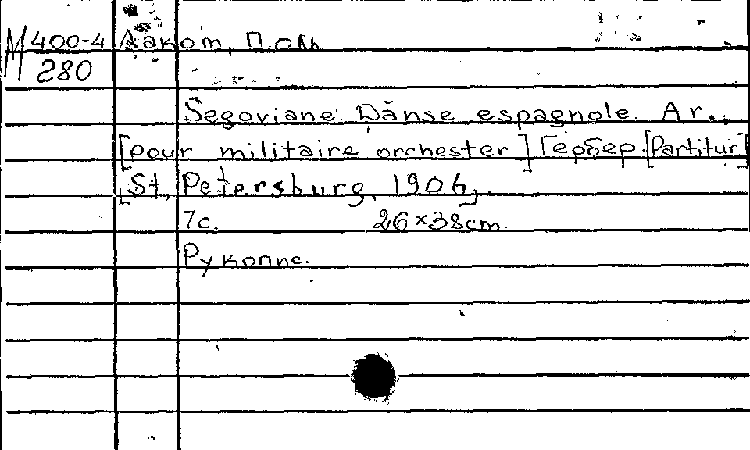 М 400-4 Лакот, Поль
280
Segoviane Danse espagnole. Ar.,
[pour militaire orchester] Гербер. [Partitur]
[St. Petersburg, 1904],
7с. 26×38cm.
Рукопис.